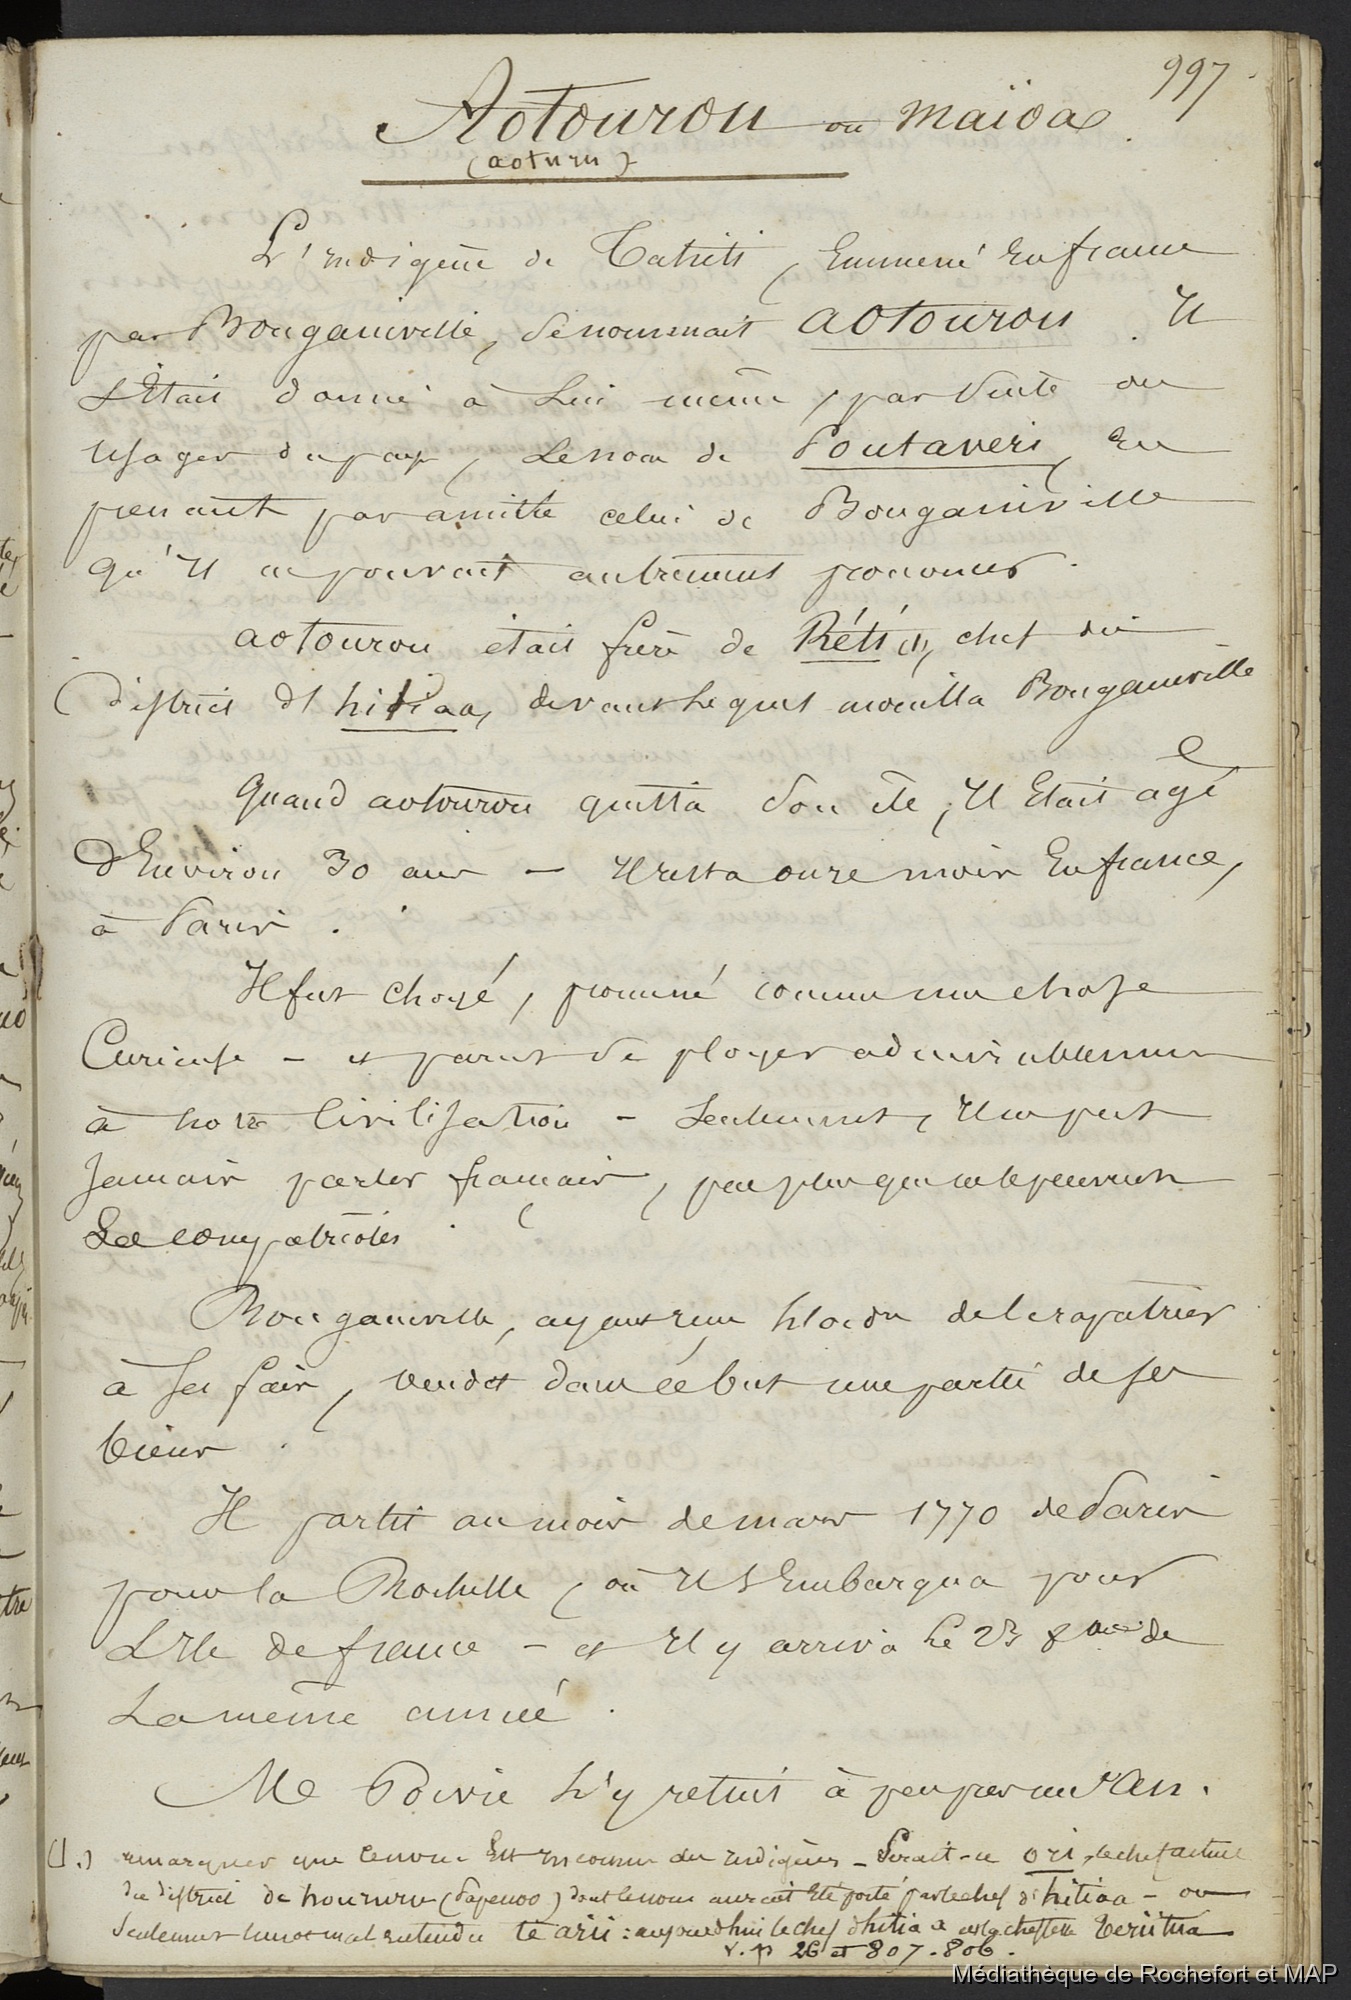 997
Aotourou ou maïoa
(aoturu)
L'indigène de Tahiti, Emmené En france
par Bougainville, Se nommait aotourou. Il
s'Etait donné à Lui même, par Suite des
usages du pays, Le nom de Poutaveri, en
prenant par amitié celui de Bougainville
qu'Il ne pouvait autrement prononcer.
aotourou était frère de Réti (1), chef du
district d'hitiaa, devant Lequel mouilla Bougainville
Quand aotourou quitta Son île, Il Etait agé
d'Environ 30 ans – Il resta onze mois En france,
à Paris.
Il fut choyé, promené comme une chose
Curieuse – et parut Se ployer admirablement
à notre Civilisation – Seulement, Il ne put
Jamais parler français, pas plus que ne le peuvent
Ses compatriotes.
Bougainville, ayant eu l'ordre de le rapatrier
à Ses frais, vendit dans ce but une partie de ses
biens.
Il partit au mois de mars 1770 de Paris
pour la Rochelle, où Il S'Embarqua pour
L'Ile de france – et Il y arriva le 23 8bre de
La même année.
Mr Poivre L'y retint à peu près un An.
(1.) remarquer que ce nom Est inconnu des indigènes – Serait-ce ori, le chef actuel
du district de hounuru (Papenoo) dont le nom aurait Eté porté par le chef d'hitiaa – ou
Seulement un mot mal entendu te arii : aujourd'hui le chef d'hitiaa est la cheffesse Teriitua
v. p 26 et 807-806.
Médiathèque de Rochefort et MAP